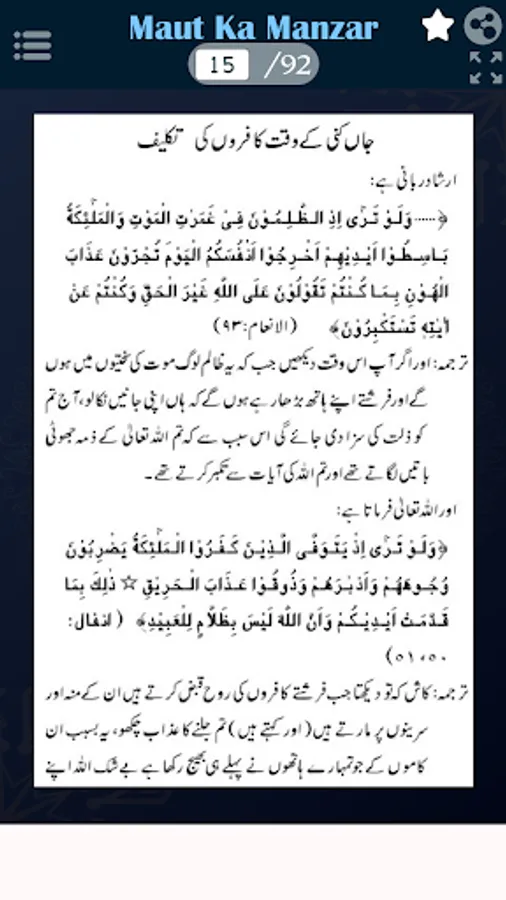 Maut Ka Manzar
15 /92
جاں کنی کے وقت کافروں کی تکلیف
ارشاد ربانی ہے:
﴿.....وَلَوْ تَرٰٓى اِذِ الظّٰلِمُوْنَ فِىْ غَمَرٰتِ الْمَوْتِ وَالْمَلٰٓئِكَةُ
بَاسِطُوْا اَيْدِيْهِمْ اَخْرِجُوْا اَنْفُسَكُمُ الْيَوْمَ تُجْزَوْنَ عَذَابَ
الْهُوْنِ بِمَا كُنْتُمْ تَقُوْلُوْنَ عَلَى اللّٰهِ غَيْرَ الْحَقِّ وَكُنْتُمْ عَنْ
اٰيٰتِهٖ تَسْتَكْبِرُوْنَ﴾ (الانعام:۹۳)
ترجمہ: اور اگر آپ اس وقت دیکھیں جب کہ یہ ظالم لوگ موت کی سختیوں میں ہوں
گے اور فرشتے اپنے ہاتھ بڑھا رہے ہوں گے کہ ہاں اپنی جانیں نکالو، آج تم
کو ذلت کی سزا دی جائے گی اس سبب سے کہ تم اللہ تعالیٰ کے ذمہ جھوٹی
باتیں لگاتے تھے اور تم اللہ کی آیات سے تکبر کرتے تھے۔
اور اللہ تعالیٰ فرماتا ہے:
﴿وَلَوْ تَرٰٓى اِذْ يَتَوَفَّى الَّذِيْنَ كَفَرُوْا الْمَلٰٓئِكَةُ يَضْرِبُوْنَ
وُجُوْهَهُمْ وَاَدْبٰرَهُمْ وَذُوْقُوْا عَذَابَ الْحَرِيْقِ ☆ ذٰلِكَ بِمَا
قَدَّمَتْ اَيْدِيْكُمْ وَاَنَّ اللّٰهَ لَيْسَ بِظَلَّامٍ لِّلْعَبِيْدِ﴾ (انفال:
۵۰،۵۱)
ترجمہ: کاش کہ تو دیکھتا جب فرشتے کافروں کی روح قبض کرتے ہیں ان کے منہ اور
سرینوں پر مارتے ہیں (اور کہتے ہیں) تم جلنے کا عذاب چکھو، یہ بسبب ان
کاموں کے جو تمہارے ہاتھوں نے پہلے ہی بھیج رکھا ہے بے شک اللہ اپنے